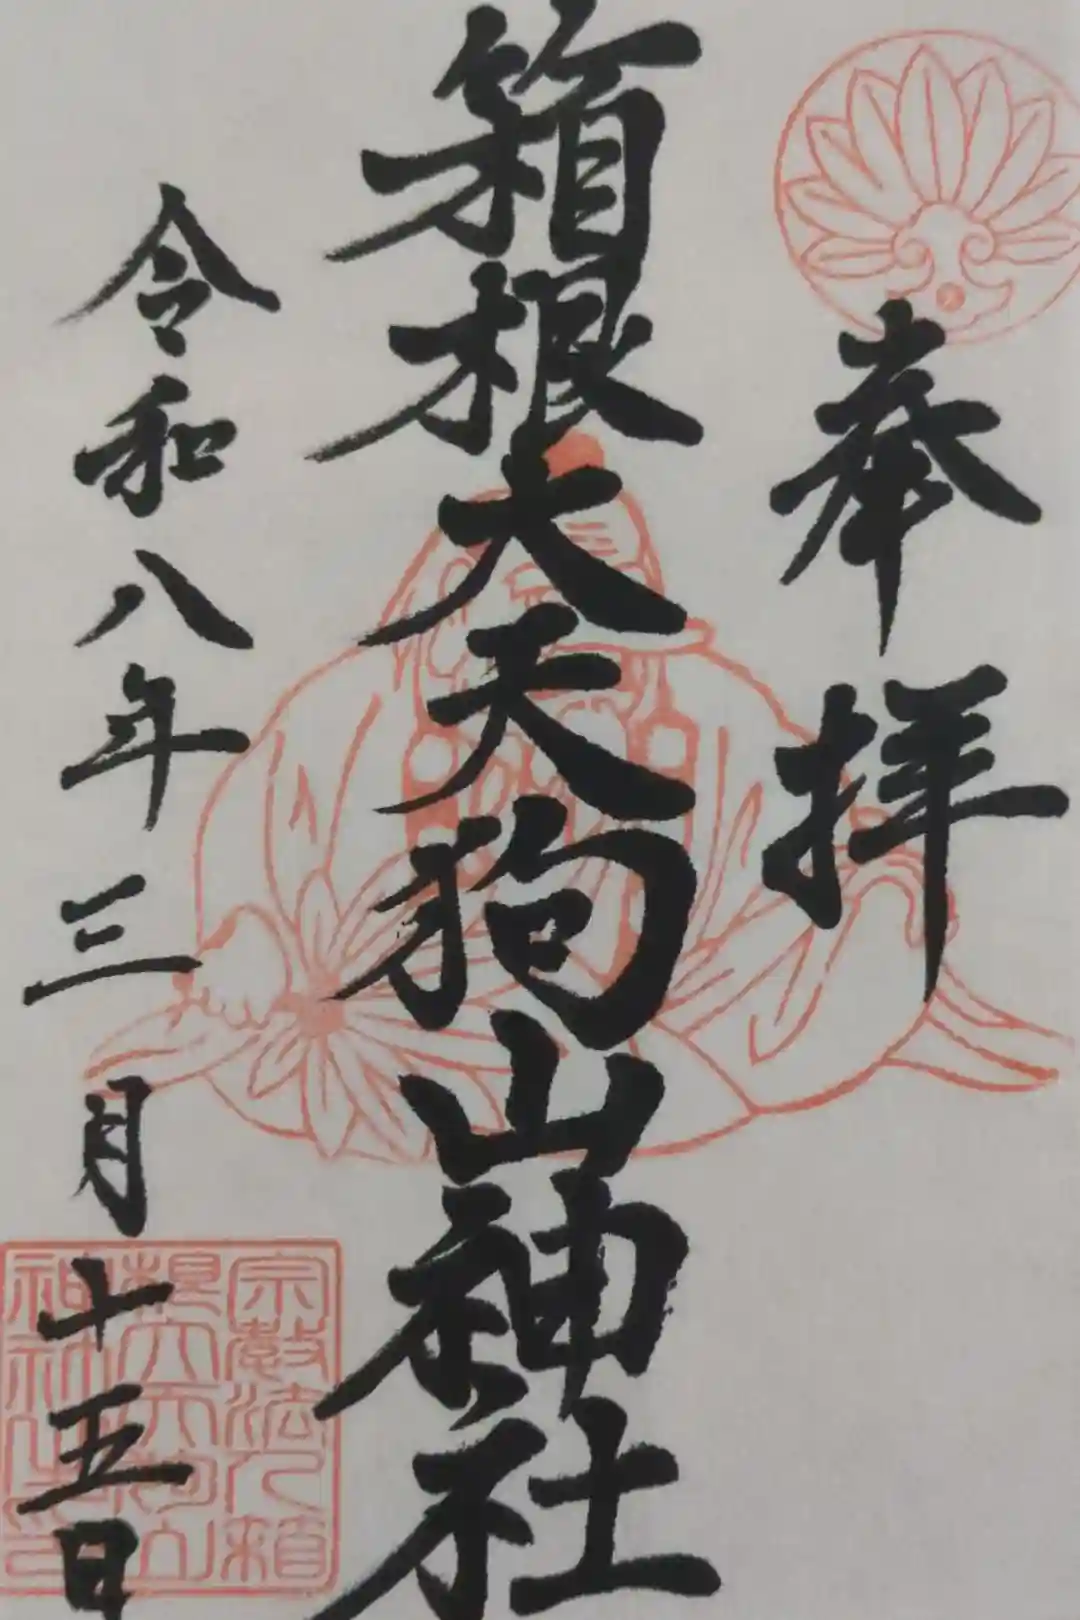 奉拝
箱根大天狗山神社
令和八年三月十五日
宗教法人箱
根大天狗山
神社之印